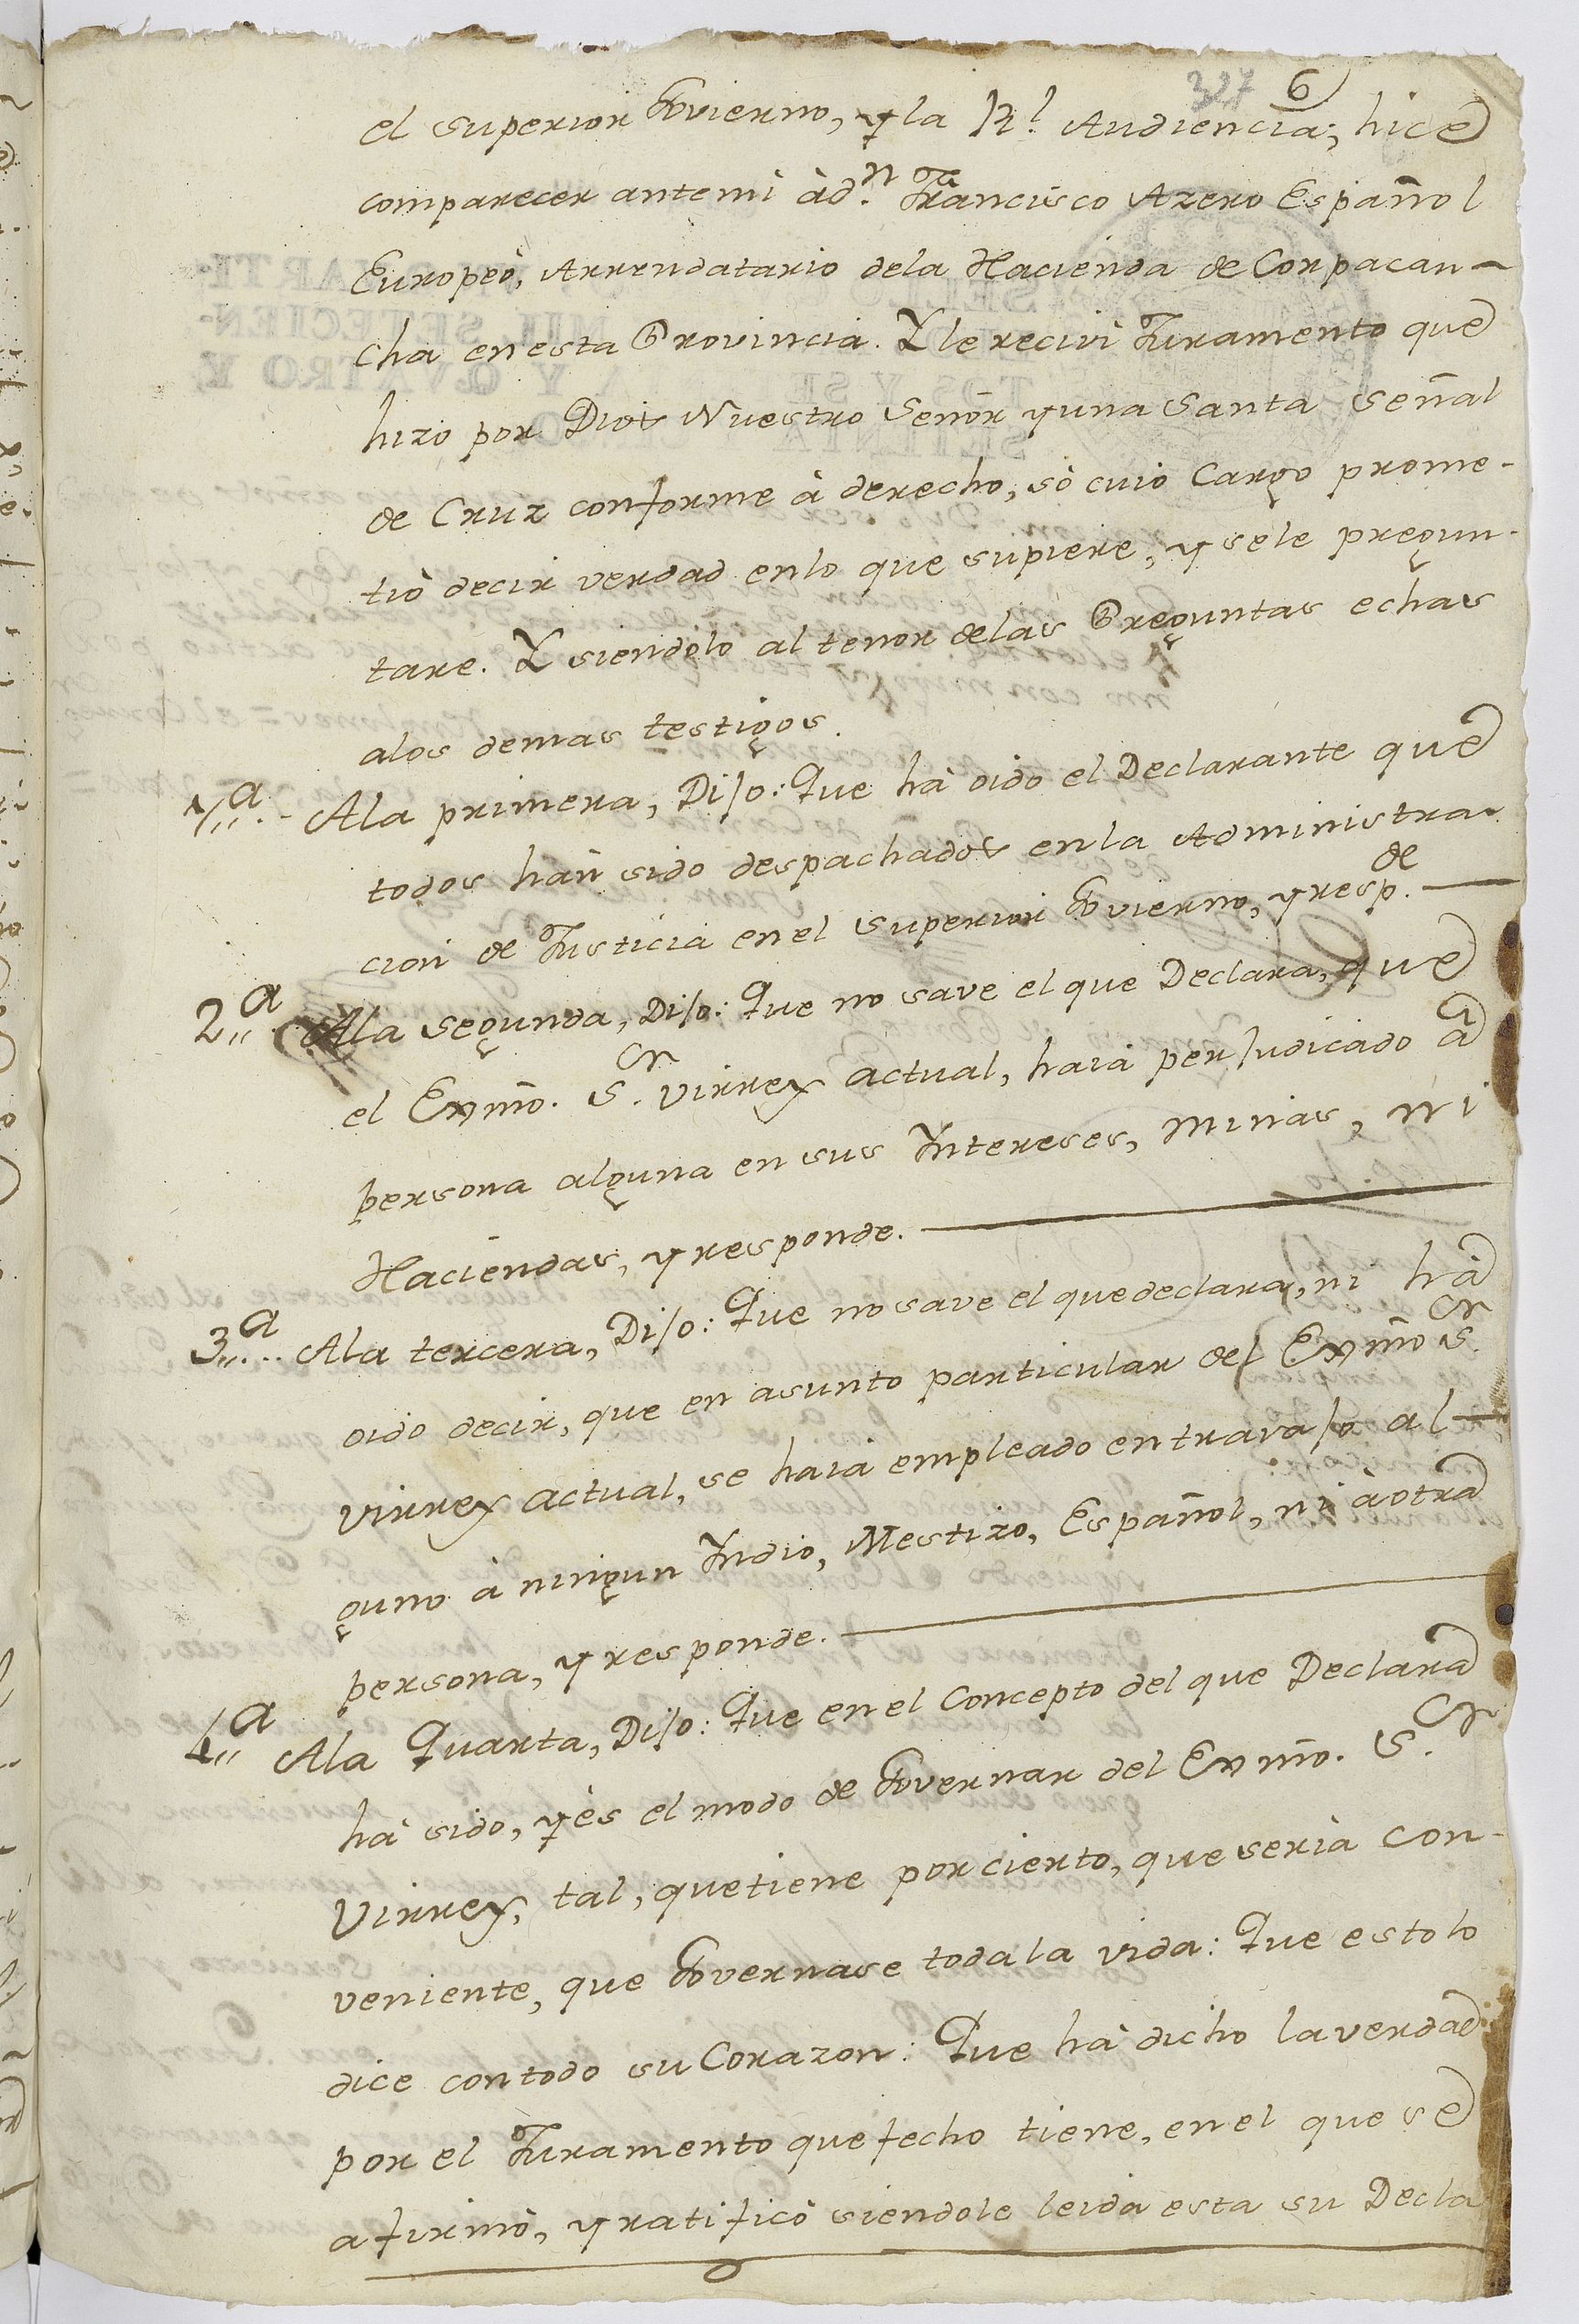 327 6
el superior Govierno, y la Rl. Audiencia; hice
comparecer antemi àdn. Francisco Azero Español
Europeo, Arrendatario dela Hacienda de Corpacan-
cha en esta Provincia. Y le recivi Juramento que
hizo por Dios Nuestro Señor y una Santa señal
de Cruz conforme à derecho, sò cuio Cargo prome-
tiò decir verdad enlo que supiere, y sele pregun-
tare. Y siendolo al tenor delas Preguntas echas
alos demas testigos.
1,,a.. Ala primera, Dijo: Que hà oido el Declarante que
todos hàn sido despachados en la Administra-
cion de Justicia en el superior Govierno, y respde.
2,,a.. Ala segunda, Dijo: Que no save el que Declara, que
el Exmo. Sor. Virrey actual, haia perJudicado à
persona alguna en sus Intereses, Minas, ni
Haciendas, y responde.
3,,a... Ala tercera, Dijo: Que no save el que declara, ni hà
oido decir, que en asunto particular del Exmo Sor.
Virrey actual, se haia empleado en travajo al-
guno à ningun Indio, Mestizo, Español, ni à otra
persona, y responde.
4,,a Ala Quarta, Dijo: Que en el Concepto del que Declara
hà sido, y ès el modo de Governar del Exmo. Sor.
Virrey, tal, que tiene por cierto, que seria con-
veniente, que Governase toda la vida: Que esto lo
dice con todo su Corazon: Que hà dicho la verdad
por el Juramento que fecho tiene, en el que se
afirmò, y ratificò siendole leida esta su Decla